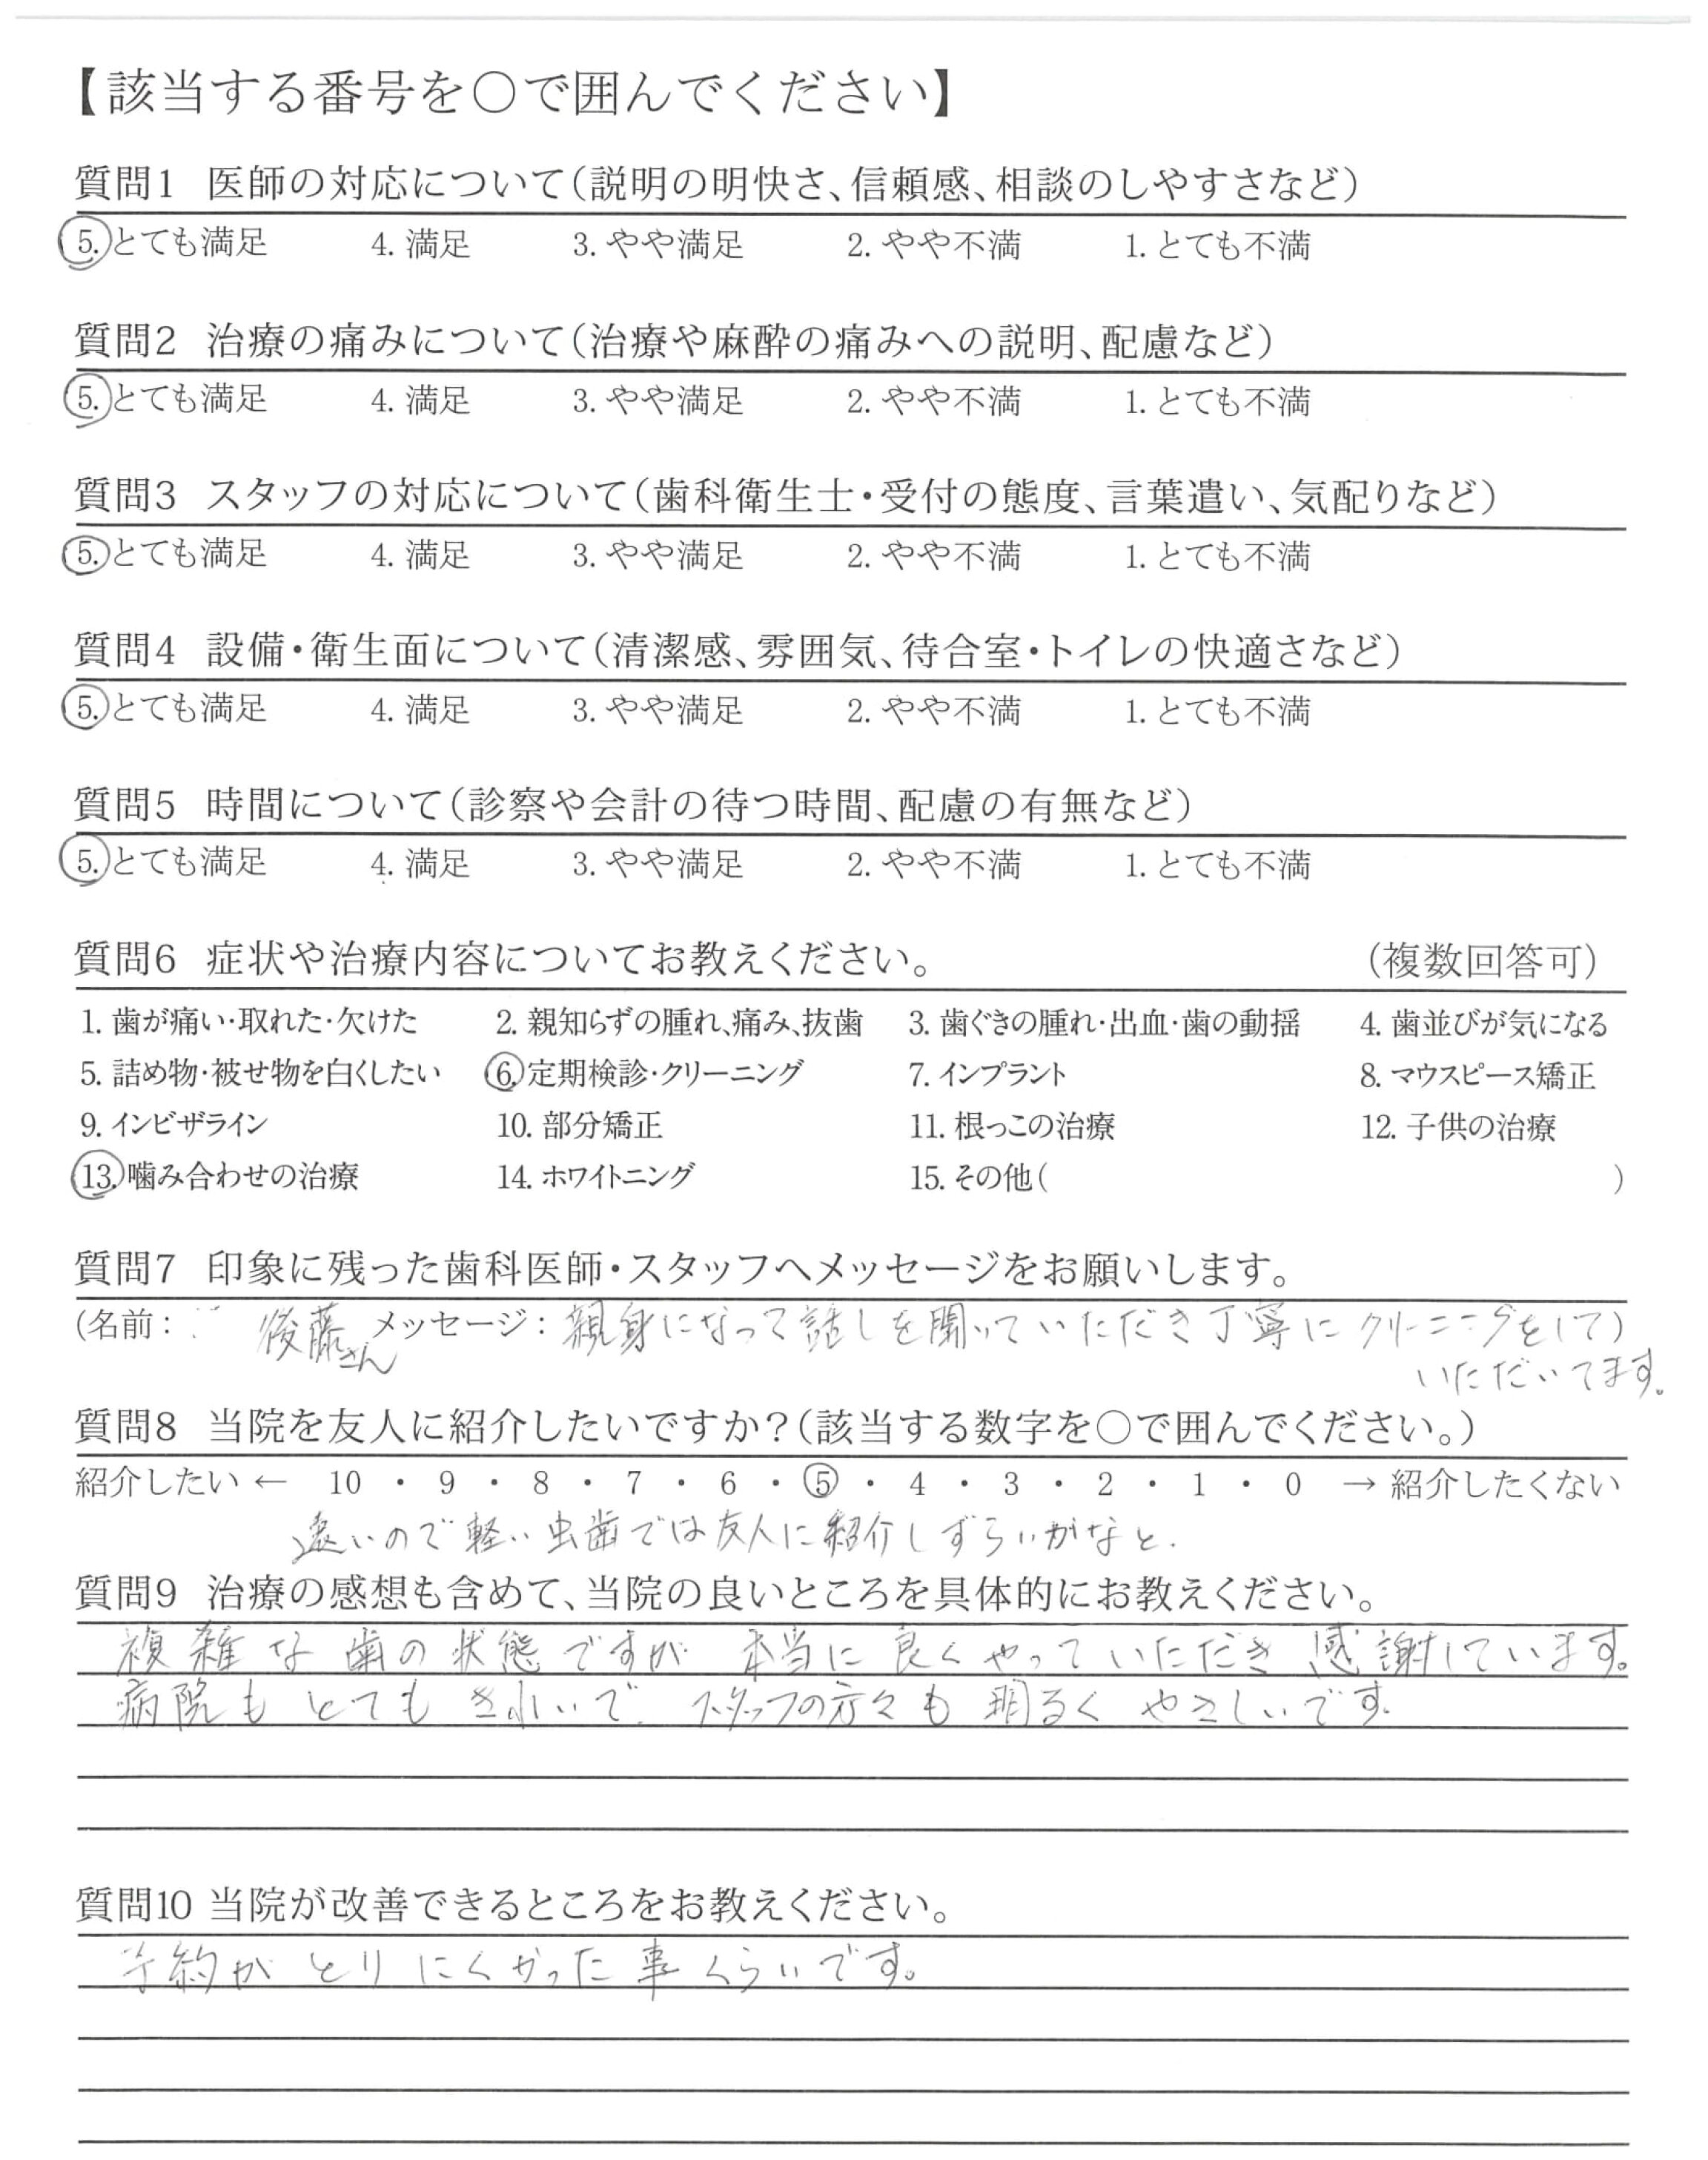 【該当する番号を〇で囲んでください】
質問1 医師の対応について(説明の明快さ、信頼感、相談のしやすさなど)
5. とても満足 4. 満足 3. やや満足 2. やや不満 1. とても不満
質問2 治療の痛みについて(治療や麻酔の痛みへの説明、配慮など)
5. とても満足 4. 満足 3. やや満足 2. やや不満 1. とても不満
質問3 スタッフの対応について(歯科衛生士・受付の態度、言葉遣い、気配りなど)
5. とても満足 4. 満足 3. やや満足 2. やや不満 1. とても不満
質問4 設備・衛生面について(清潔感、雰囲気、待合室・トイレの快適さなど)
5. とても満足 4. 満足 3. やや満足 2. やや不満 1. とても不満
質問5 時間について(診察や会計の待つ時間、配慮の有無など)
5. とても満足 4. 満足 3. やや満足 2. やや不満 1. とても不満
質問6 症状や治療内容についてお教えください。 (複数回答可)
1. 歯が痛い・取れた・欠けた 2. 親知らずの腫れ、痛み、抜歯 3. 歯ぐきの腫れ・出血・歯の動揺 4. 歯並びが気になる
5. 詰め物・被せ物を白くしたい 6. 定期検診・クリーニング 7. インプラント 8. マウスピース矯正
9. インビザライン 10. 部分矯正 11. 根っこの治療 12. 子供の治療
13. 噛み合わせの治療 14. ホワイトニング 15. その他( )
質問7 印象に残った歯科医師・スタッフへメッセージをお願いします。
(名前: 後藤さん メッセージ: 親身になって話しを聞いていただき丁寧にクリーニングをして)
いただいてます。
質問8 当院を友人に紹介したいですか?(該当する数字を〇で囲んでください。)
紹介したい ← 10 ・ 9 ・ 8 ・ 7 ・ 6 ・ 5 ・ 4 ・ 3 ・ 2 ・ 1 ・ 0 → 紹介したくない
遠いので軽い虫歯では友人に紹介しずらいかなと.
質問9 治療の感想も含めて、当院の良いところを具体的にお教えください。
複雑な歯の状態ですが 本当に良くやっていただき 感謝しています。
病院もとてもきれいで、スタッフの方々も明るくやさしいです.
質問10 当院が改善できるところをお教えください。
予約がとりにくかった事くらいです。